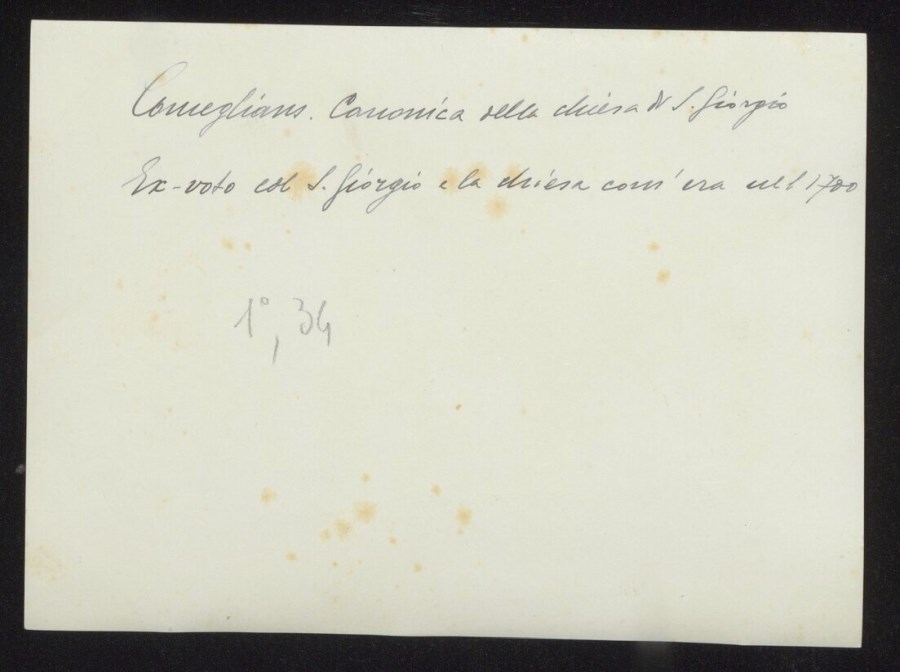 Comeglians. Canonica della chiesa di S. Giorgio
Ex-voto col S. Giorgio e la chiesa com'era nel 1700
1°, 34